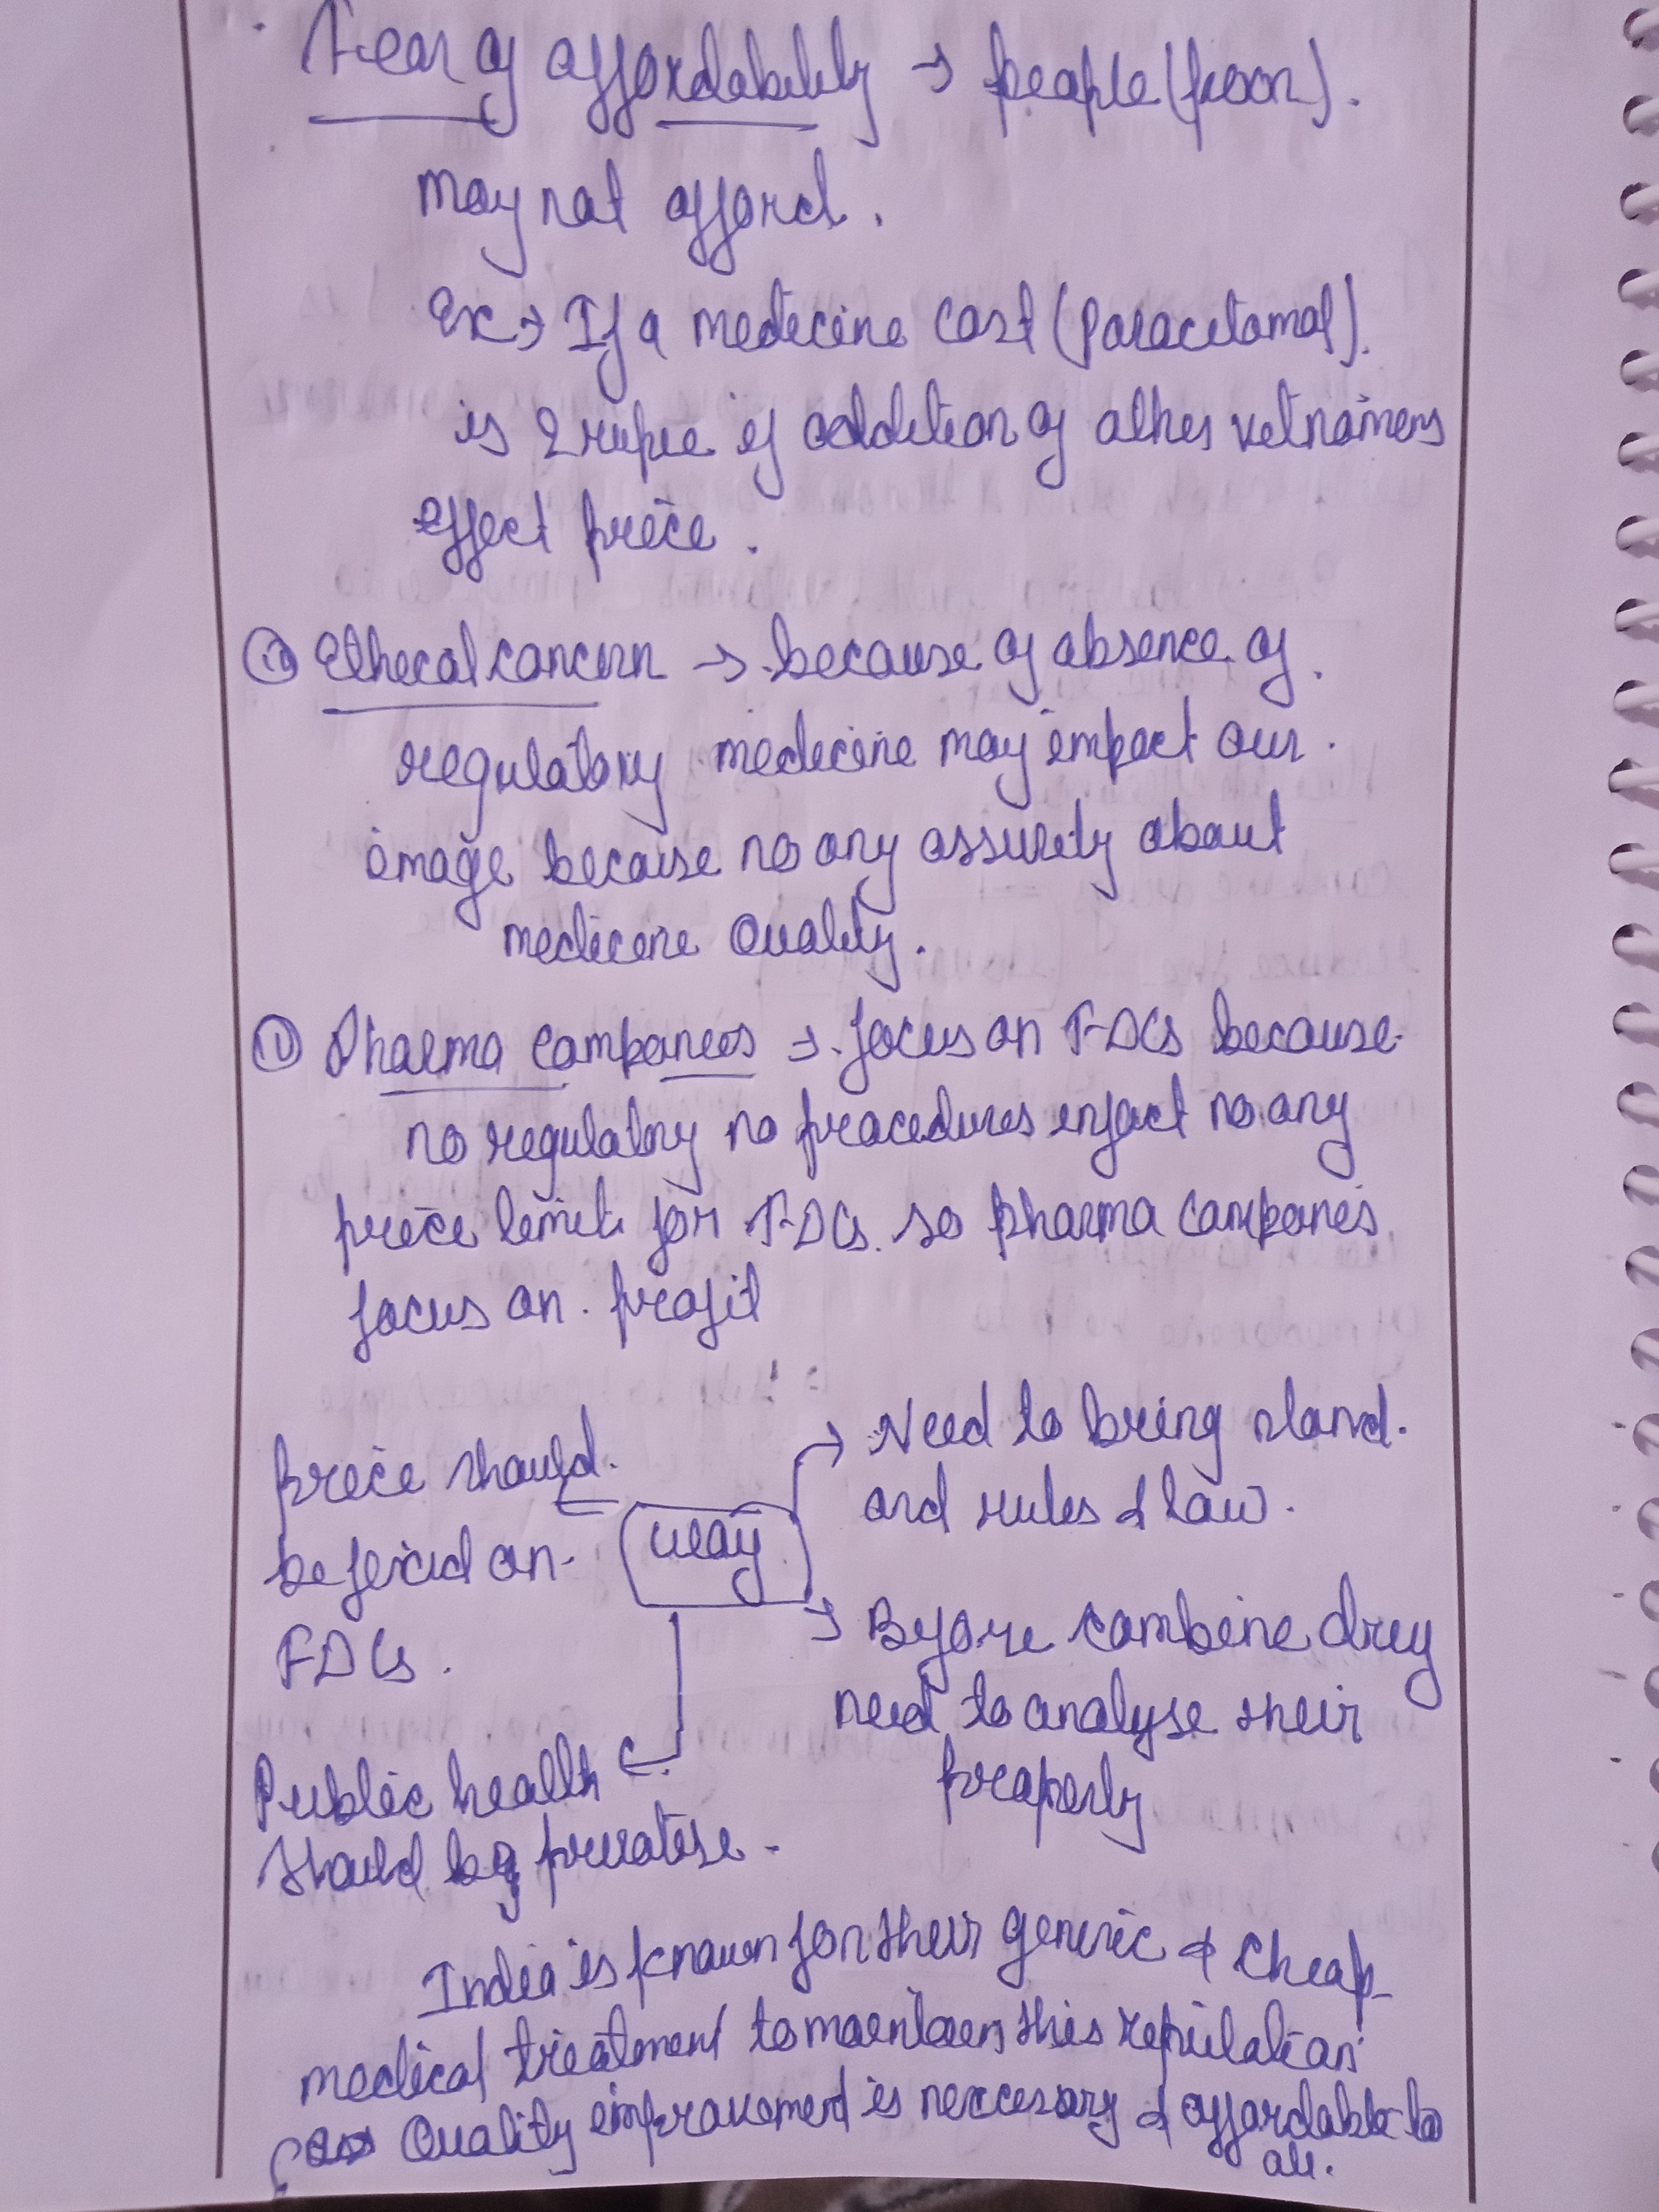 Fear of affordability → people (poor).
may not afford.
Ex → If a medecine cost (Paracetamol).
is 2 rupee if addition of other
effect price.
Ethical concern → because of absence of.
regulatory medecine may impact our.
image because no any assurety about
medicene Quality.
Pharma companies → focus on FDCs because
no regulatory no procedures infact no any
price limit for FDCs. so pharma companies
focus on. profit
way
→ Need to bring stand.
ard rules & law.
price should.
be fixed on
FDCs.
→ Before combine drug
need to analyse their
properly
Public health
should be privatise.
India is known for their generic & cheap
medical treatment to maintaen this reputation
Quality improvement is neccessary & affordable to
all.